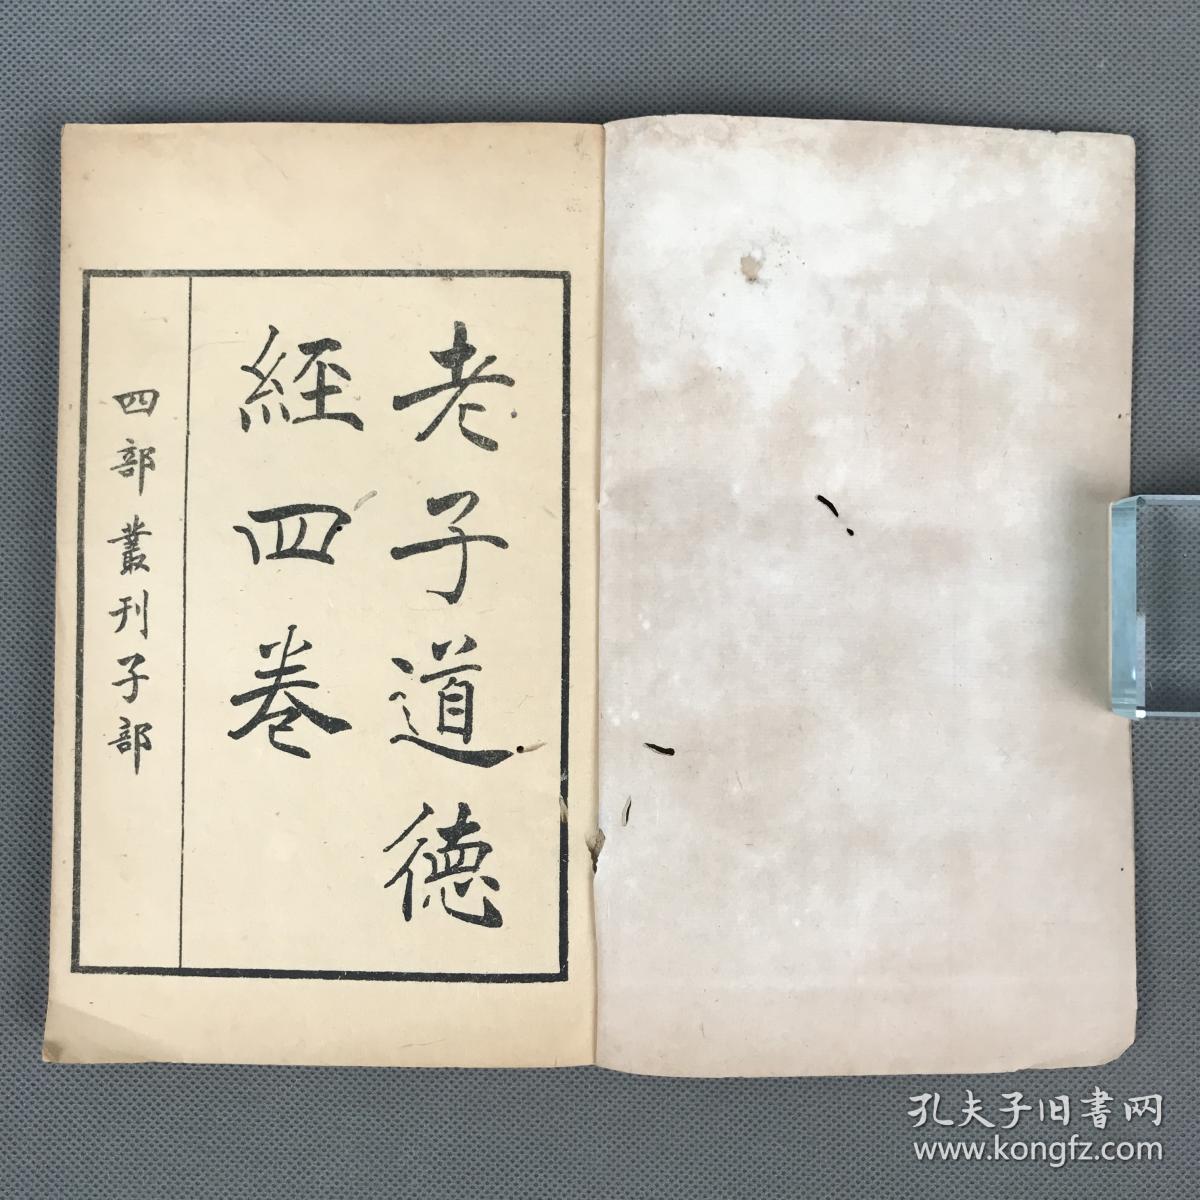 老子道德
經四卷
四部叢刊子部
孔夫子旧書网
www.kongfz.com